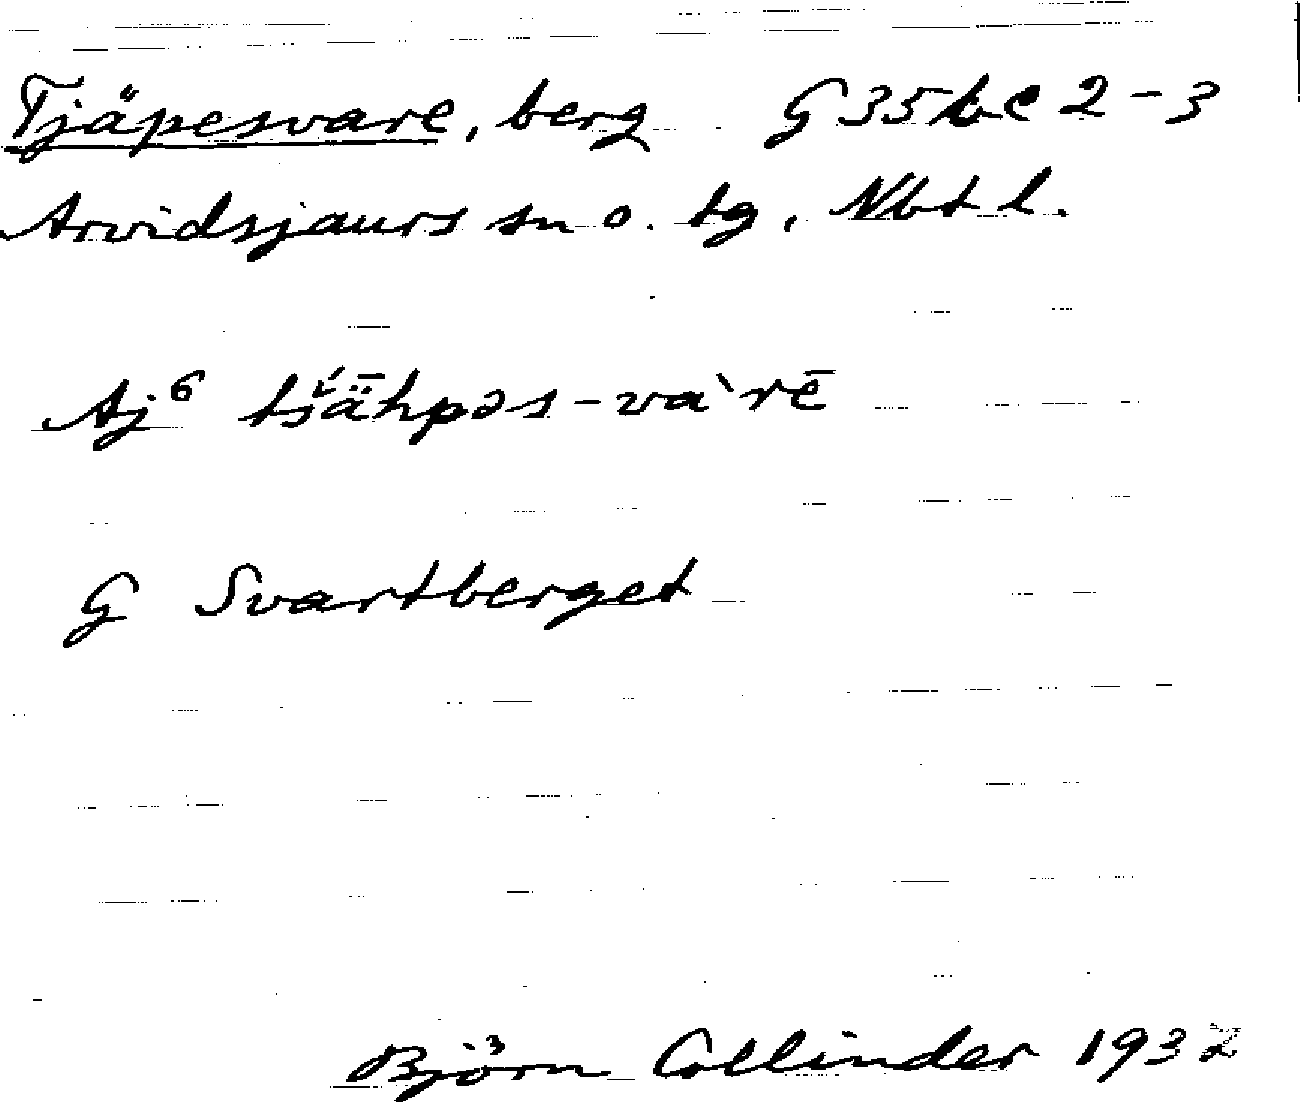 Tjäpesvare, berg G 35 bc 2-3
Arvidsjaurs sn o. tg, Nbt l.
Aj⁶ tš́ǟhpəs-va`rē
G Svartberget
Björn Collinder 1932